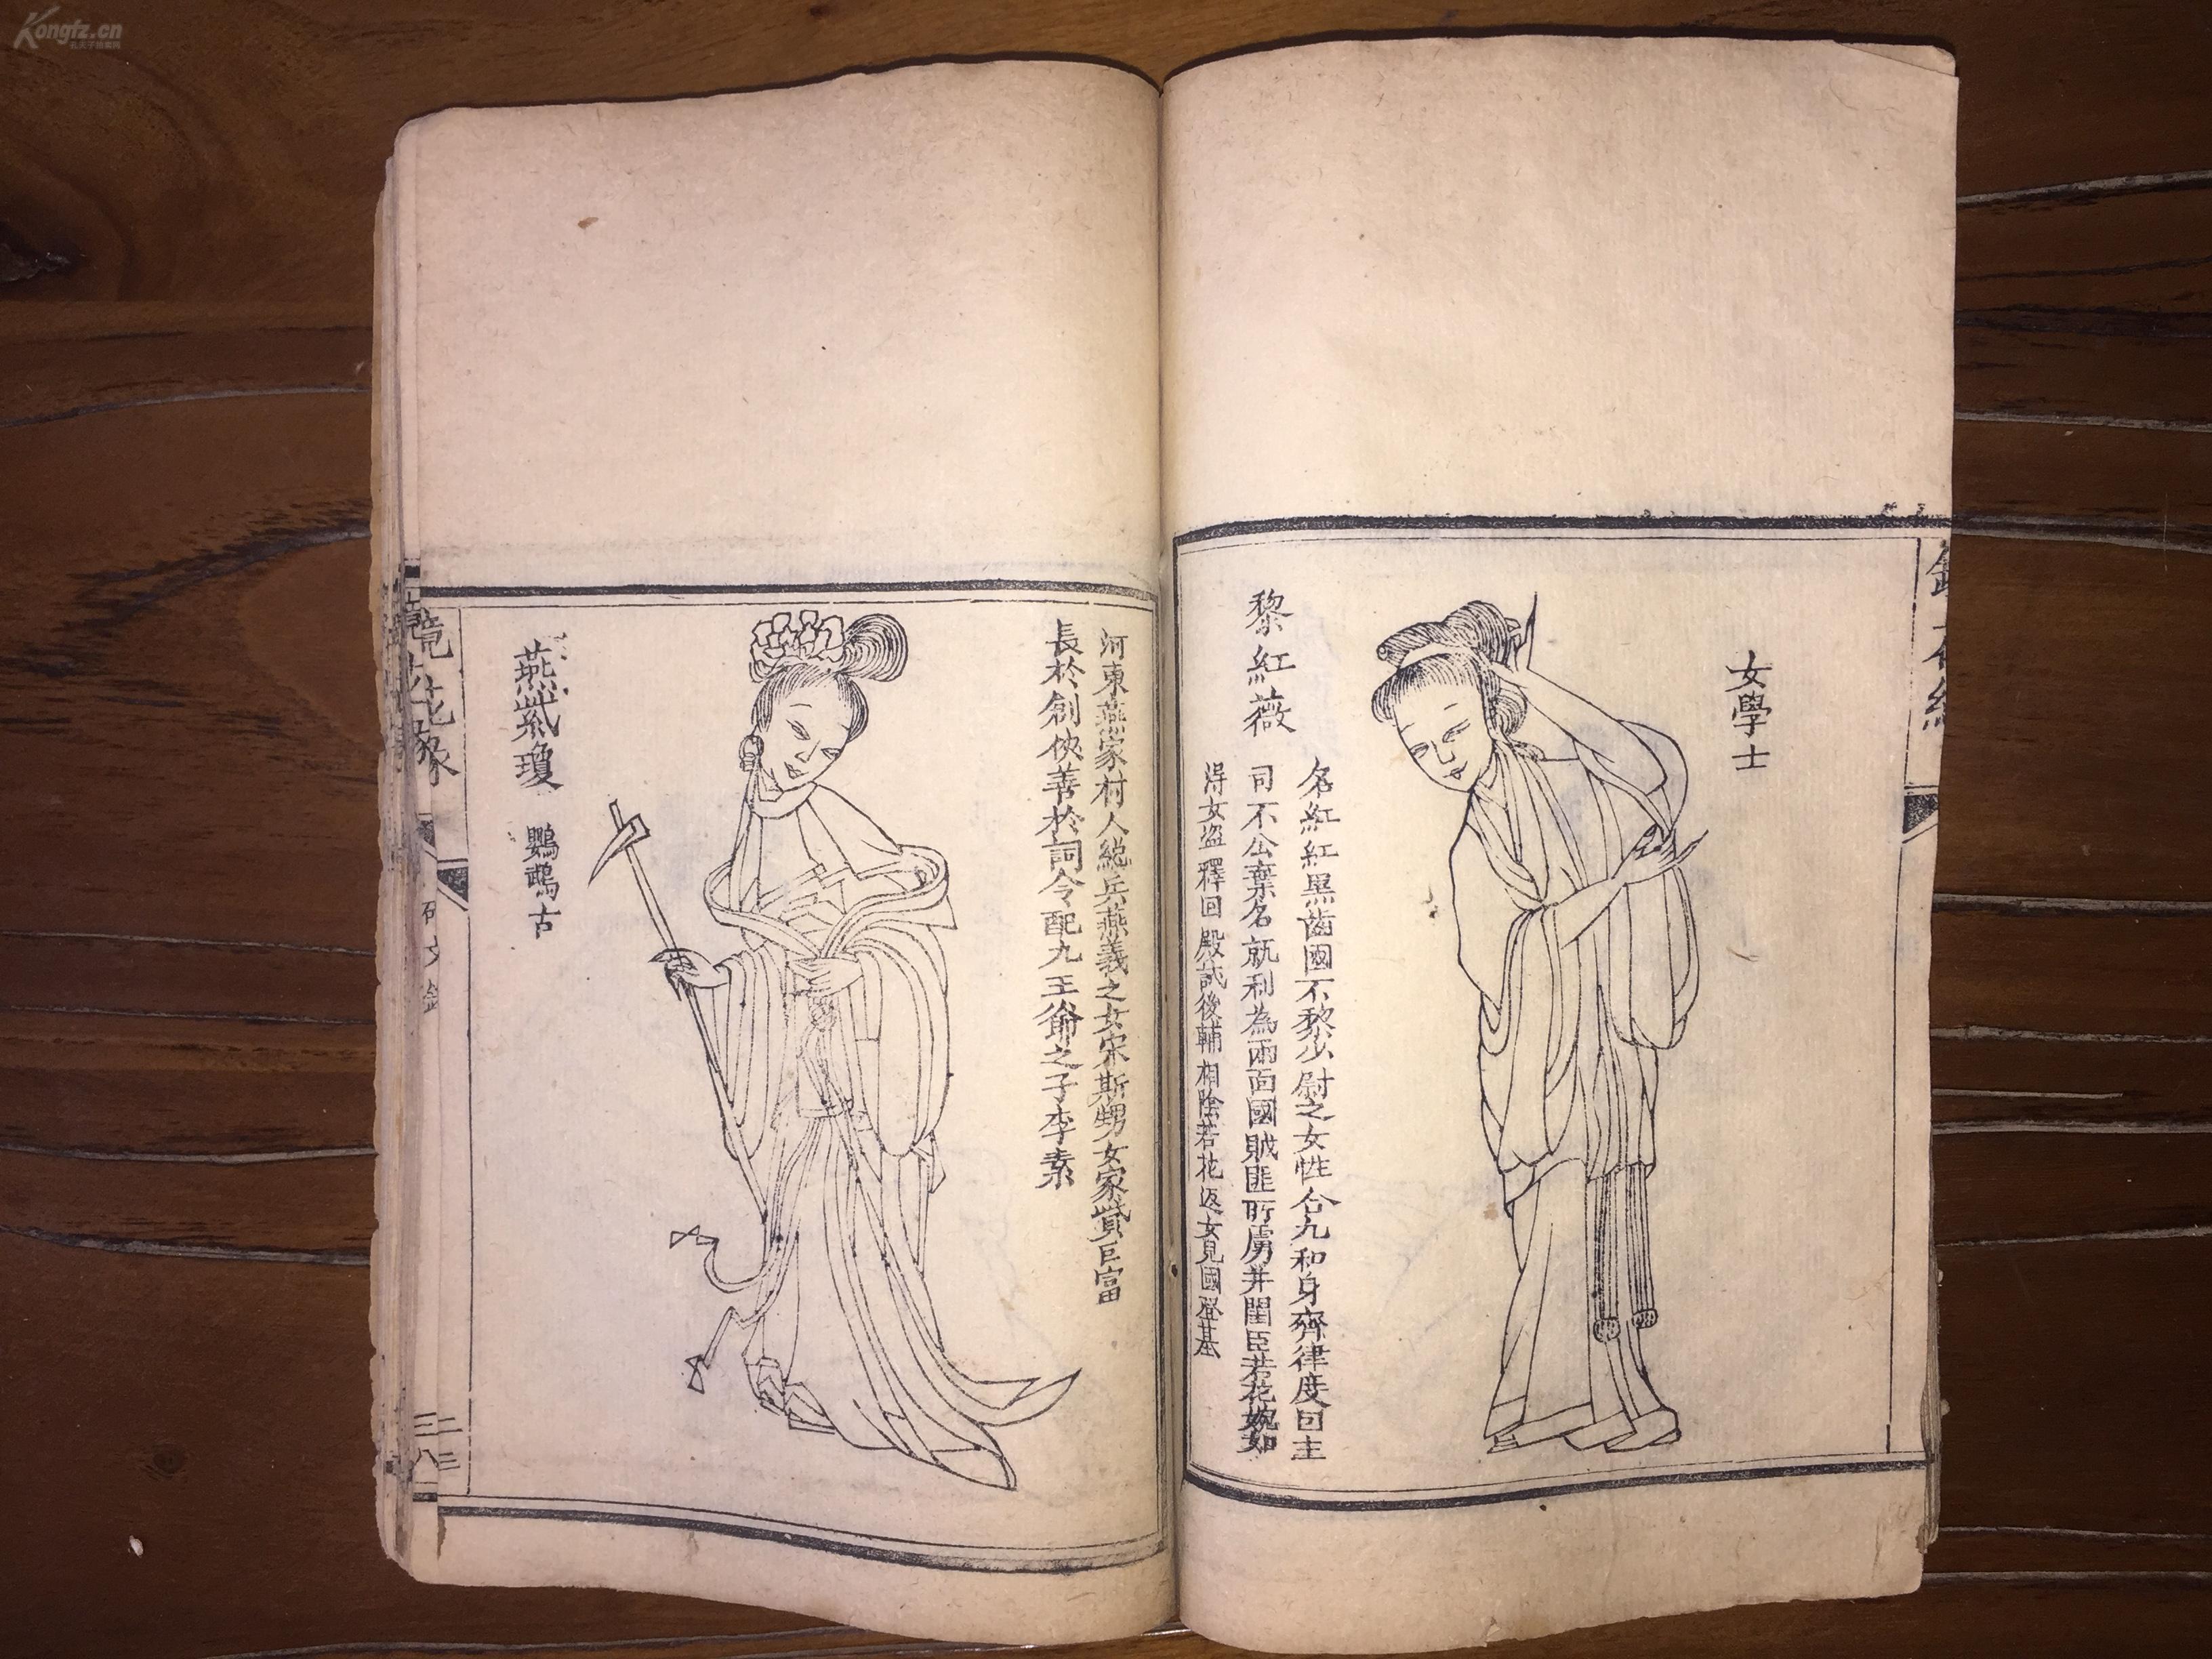 Kongfz.cn
女學士
黎紅薇
名紅紅黑齒國不黎少尉之女性合九和身齊律度曰主
司不公棄名就利為兩面國賊匪所虜并閨臣若花婉如
淂女盜釋回殿試後輔相陰若花返女兒國登基
河東燕家村人總兵燕義之女宋斯甥女家貲巨富
長於劍俠善於詞令配九王爺之子李素
燕紫瓊
鸚鵡古
鏡花緣
二三